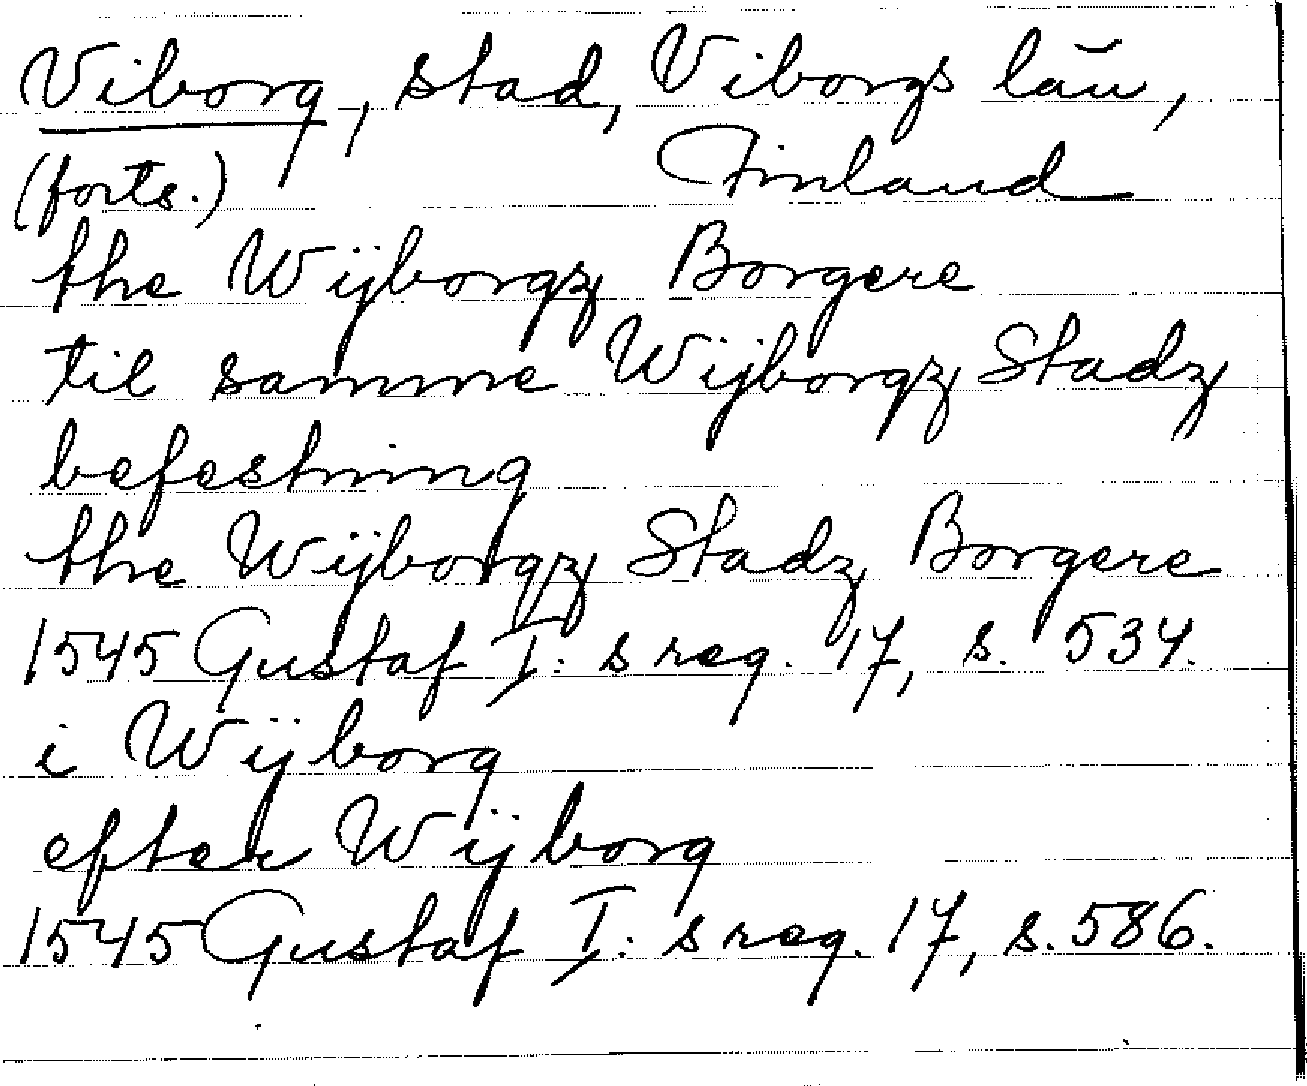 Viborg, stad, Viborgs län,
(forts.) Finland
the Wijborgz Borgere
til samme Wijborgz Stadz
befestning
the Wijborgz Stadz Borgere
1545 Gustaf I:s reg. 17, s. 534.
i Wijborg
efter Wijborg
1545 Gustaf I:s reg. 17, s. 586.